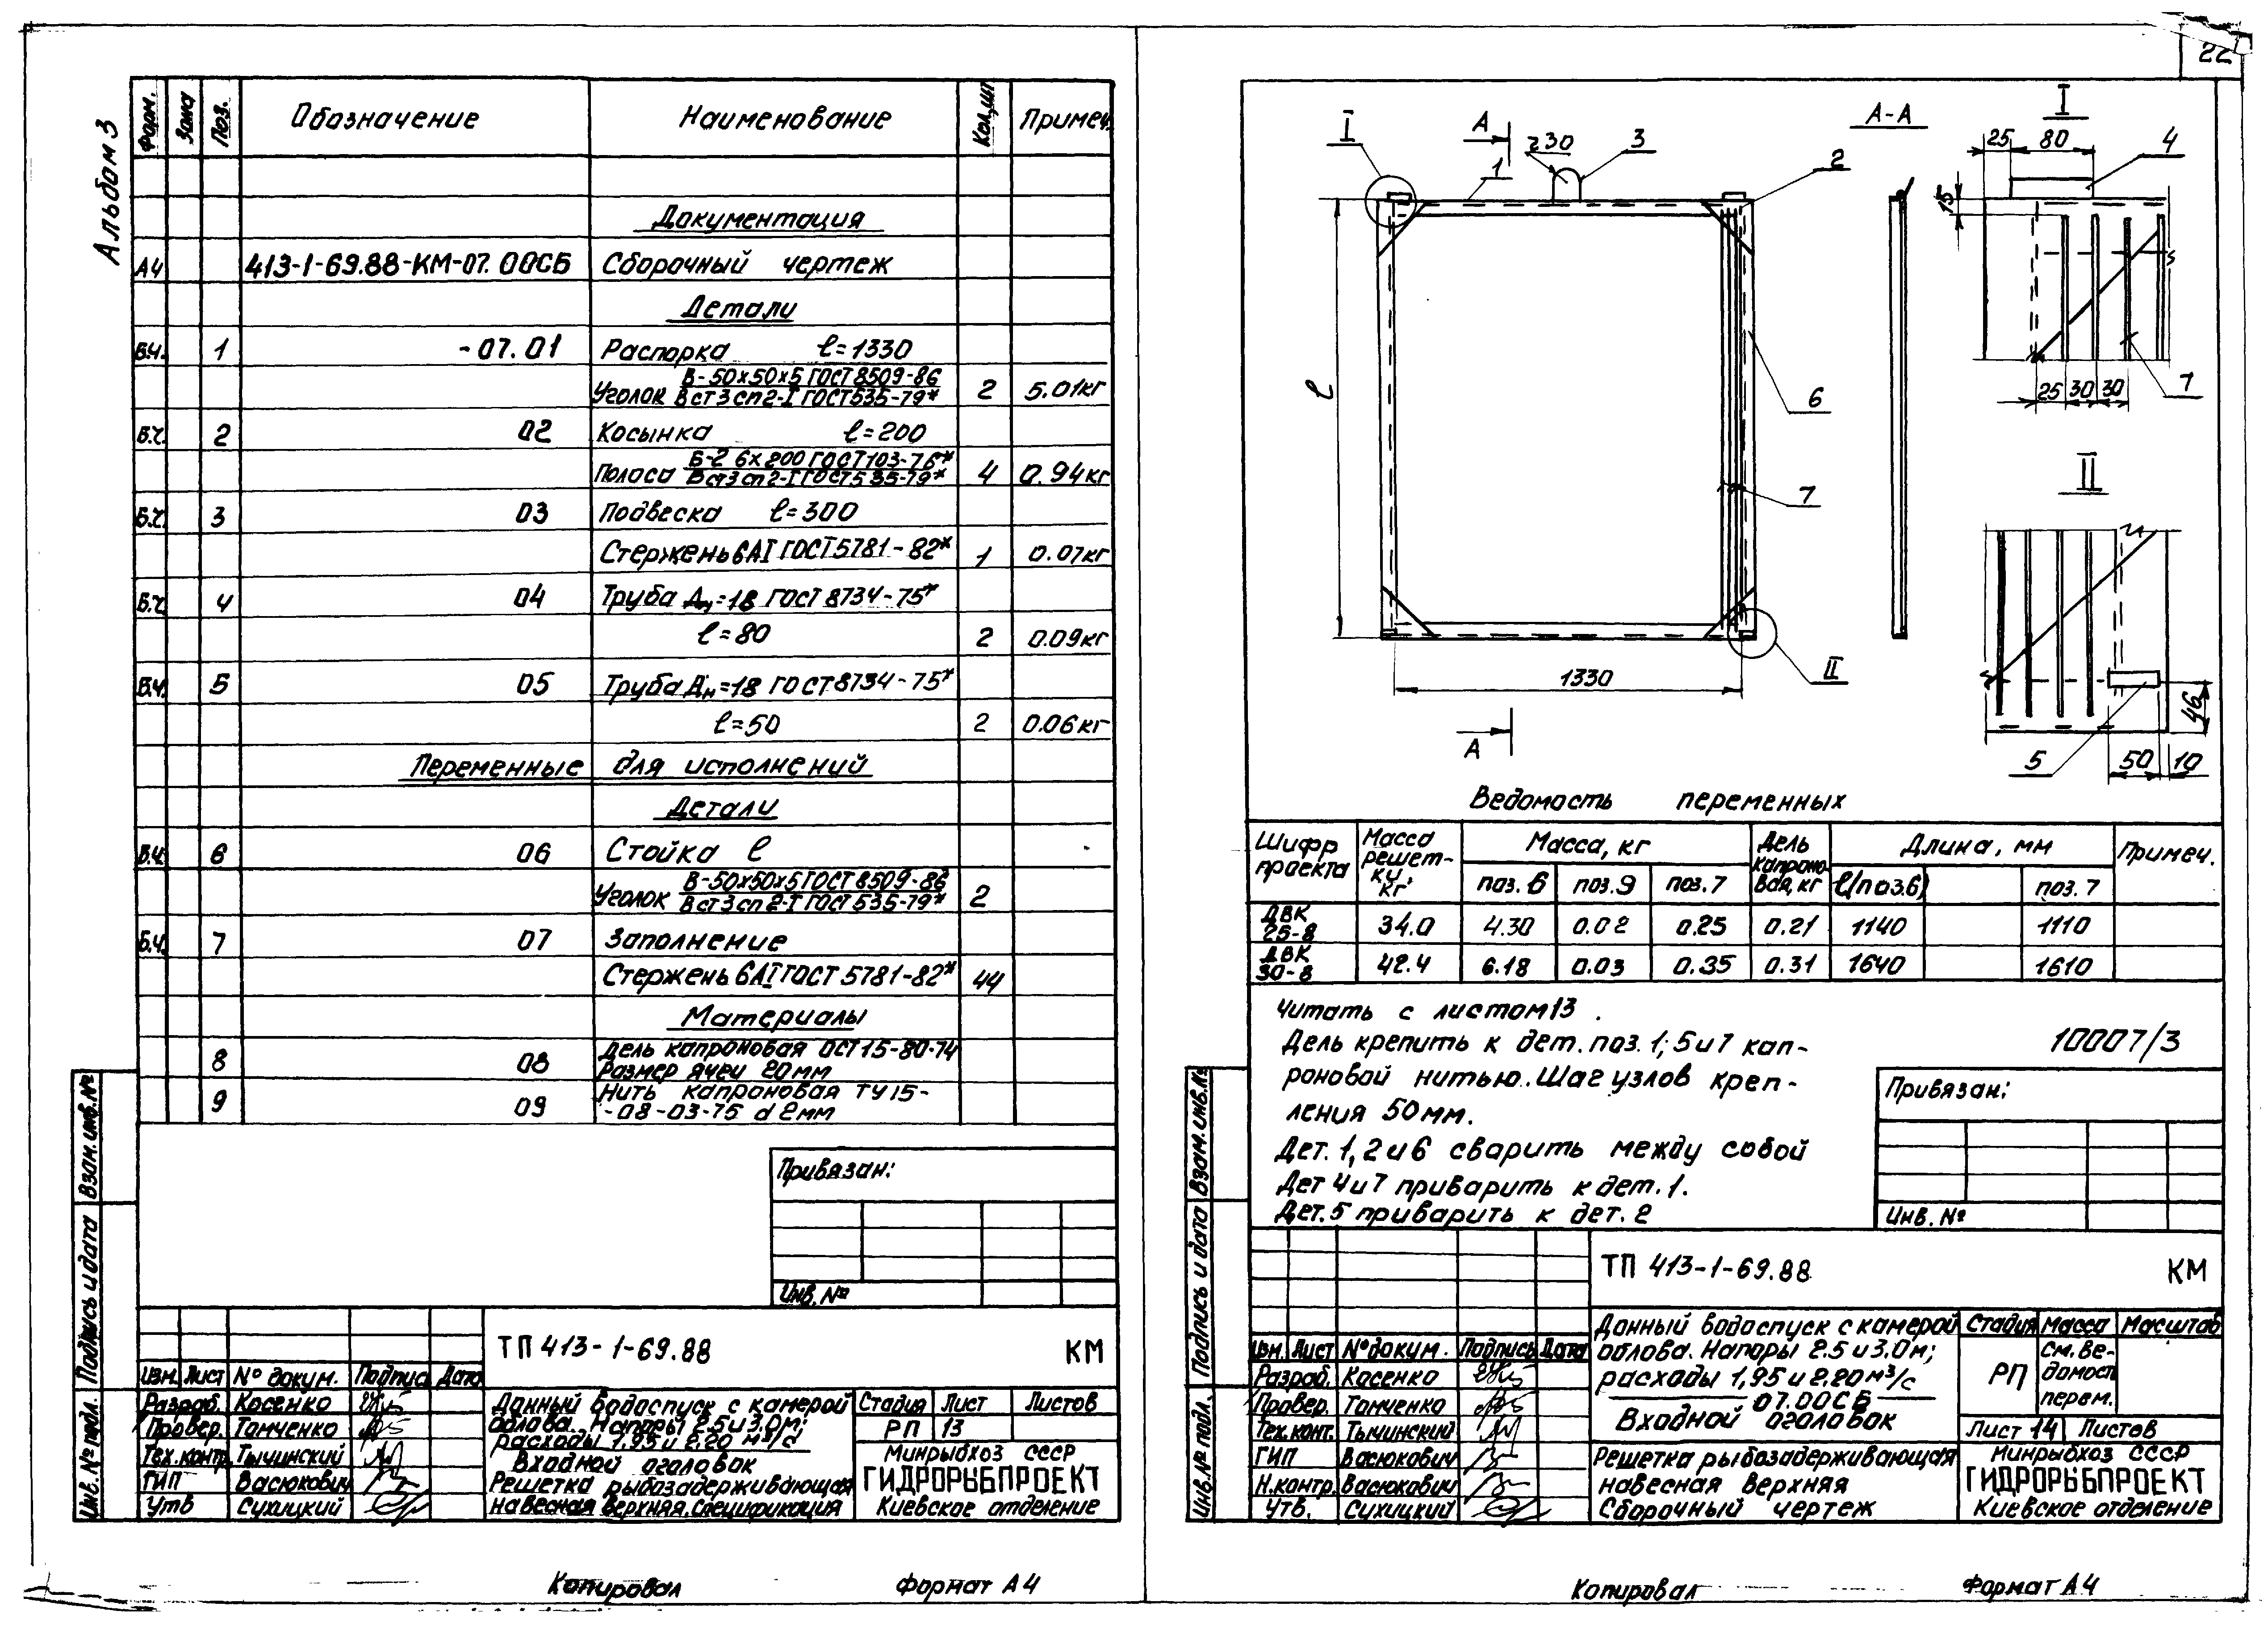 22
Альбом 3
Форм. Зона Поз. Обозначение Наименование Кол,шт Примеч.
Документация
А4 413-1-69.88-КМ-07.00СБ Сборочный чертеж
Детали
Б.ч. 1 -07.01 Распорка ℓ=1330
Уголок В-50х50х5 ГОСТ 8509-86 / Вст3сп2-I ГОСТ 535-79* 2 5.01кг
Б.ч. 2 02 Косынка ℓ=200
Полоса Б-2 6х200 ГОСТ 103-76* / Вст3сп2-I ГОСТ 535-79* 4 0.94кг
Б.ч. 3 03 Подвеска ℓ=300
Стержень 6АI ГОСТ 5781-82* 1 0.07кг
Б.ч. 4 04 Труба Дн=18 ГОСТ 8734-75*
ℓ=80 2 0.09кг
Б.ч. 5 05 Труба Дн=18 ГОСТ 8734-75*
ℓ=50 2 0.06кг
Переменные для исполнений
Детали
Б.ч. 6 06 Стойка ℓ
Уголок В-50х50х5 ГОСТ 8509-86 / Вст3сп2-I ГОСТ 535-79* 2
Б.ч. 7 07 Заполнение
Стержень 6АI ГОСТ 5781-82* 44
Материалы
8 08 Дель капроновая ОСТ 15-80-74
Размер ячеи 20мм
9 09 Нить капроновая ТУ 15-
-08-03-75 d 2мм
Привязан:
Инв. №
Взам. инв. №
Подпись и дата
Инв. № подл.
ТП 413-1-69.88 КМ
Изм. Лист № докум. Подпись Дата
Разраб. Косенко
Провер. Томченко
Тех.контр. Тычинский
ГИП Васюкович
Утв Сухицкий
Донный водоспуск с камерой
облова. Напоры 2.5 и 3.0м;
расходы 1,95 и 2.20 м³/с
Входной оголовок
Решетка рыбозадерживающая
навесная верхняя. Спецификация
Стадия Лист Листов
РП 13
Минрыбхоз СССР
ГИДРОРЫБПРОЕКТ
Киевское отделение
Копировал Формат А4
I А r30 3 1 2 А-А I
25 80 4
15
ℓ
6
25 30 30 7
II
7
1330 II
А
46
5 50 10
Ведомость переменных
Шифр проекта Масса решетки, кг Масса, кг Дель капроновая, кг Длина, мм Примеч.
поз. 6 поз. 9 поз. 7 ℓ(поз.6) поз. 7
ДВК 25-8 34.0 4.30 0.02 0.25 0.21 1140 1110
ДВК 30-8 42.4 6.18 0.03 0.35 0.31 1640 1610
Читать с листом 13.
Дель крепить к дет. поз. 1; 5 и 7 кап-
роновой нитью. Шаг узлов креп-
ления 50мм.
Дет. 1, 2 и 6 сварить между собой
Дет 4 и 7 приварить к дет. 1.
Дет. 5 приварить к дет. 2
10007/3
Привязан:
Инв. №
Взам. инв. №
Подпись и дата
Инв. № подл.
ТП 413-1-69.88 КМ
Изм. Лист № докум. Подпись Дата
Разраб. Косенко
Провер. Томченко
Тех.конт. Тычинский
ГИП Васюкович
Н.контр. Васюкович
Утв. Сухицкий
Донный водоспуск с камерой
облова. Напоры 2.5 и 3.0м;
расходы 1,95 и 2.20 м³/с
07.00СБ
Входной оголовок
Решетка рыбозадерживающая
навесная верхняя
Сборочный чертеж
Стадия Масса Масштаб
РП См. ве-
домост
перем.
Лист 14 Листов
Минрыбхоз СССР
ГИДРОРЫБПРОЕКТ
Киевское отделение
Копировал Формат А4